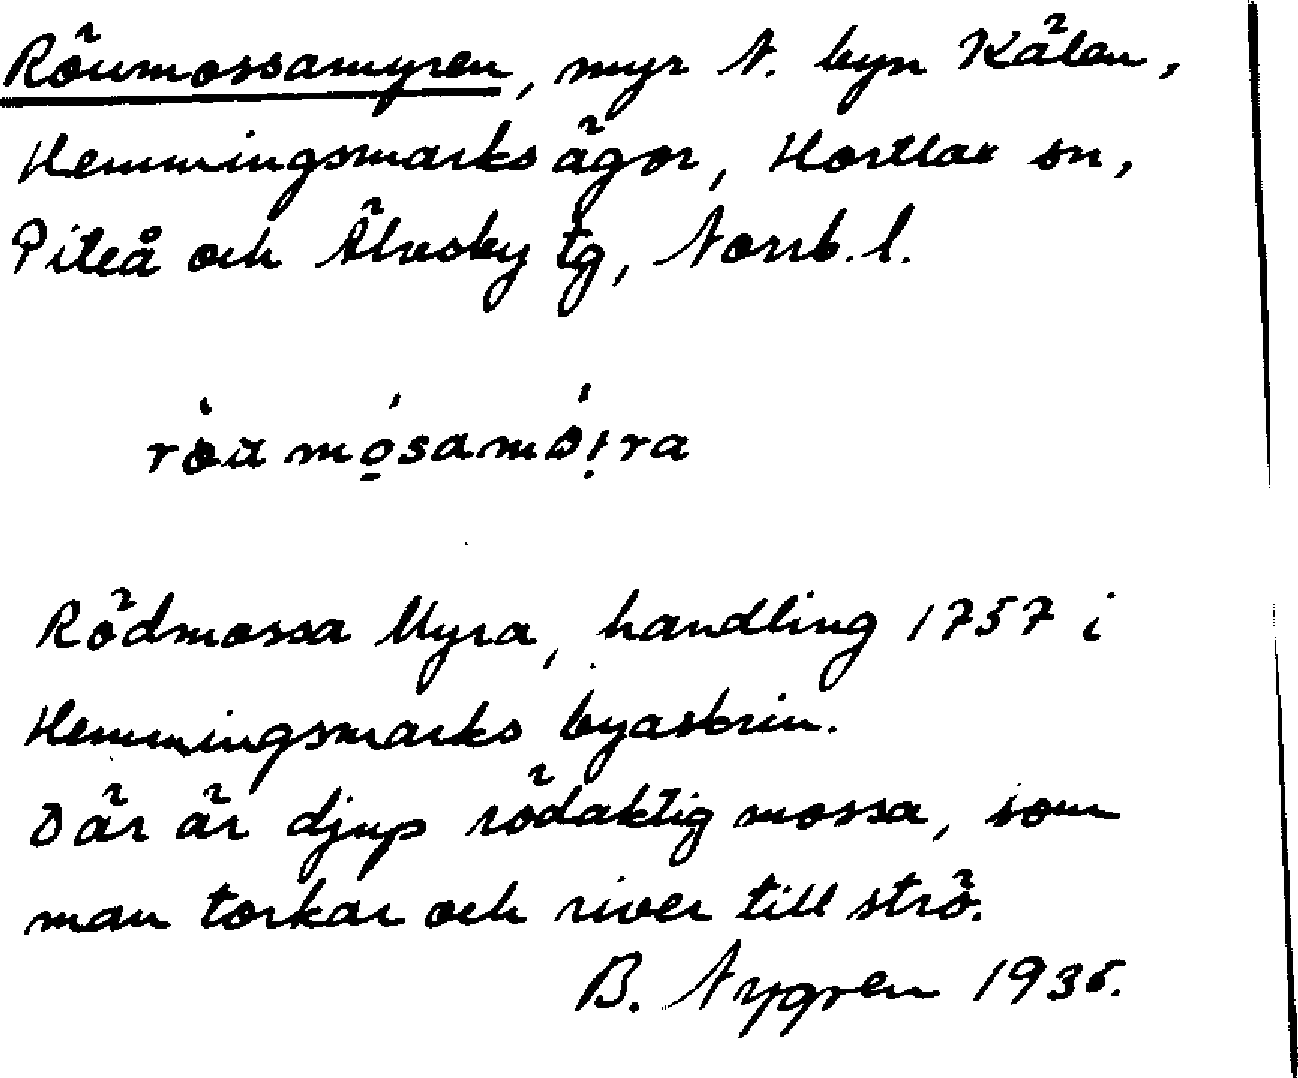 Röumossamyren, myr N. byn Kälen,
Hemmingsmarks ägor, Hortlax sn,
Piteå och Älvsby tg, Norrb. l.
Rödmossa Myra, handling 1757 i
Hemmingsmarks byaskrin.
Där är djup rödaktig mossa, som
man torkar och river till strö.
B. Nygren 1935.